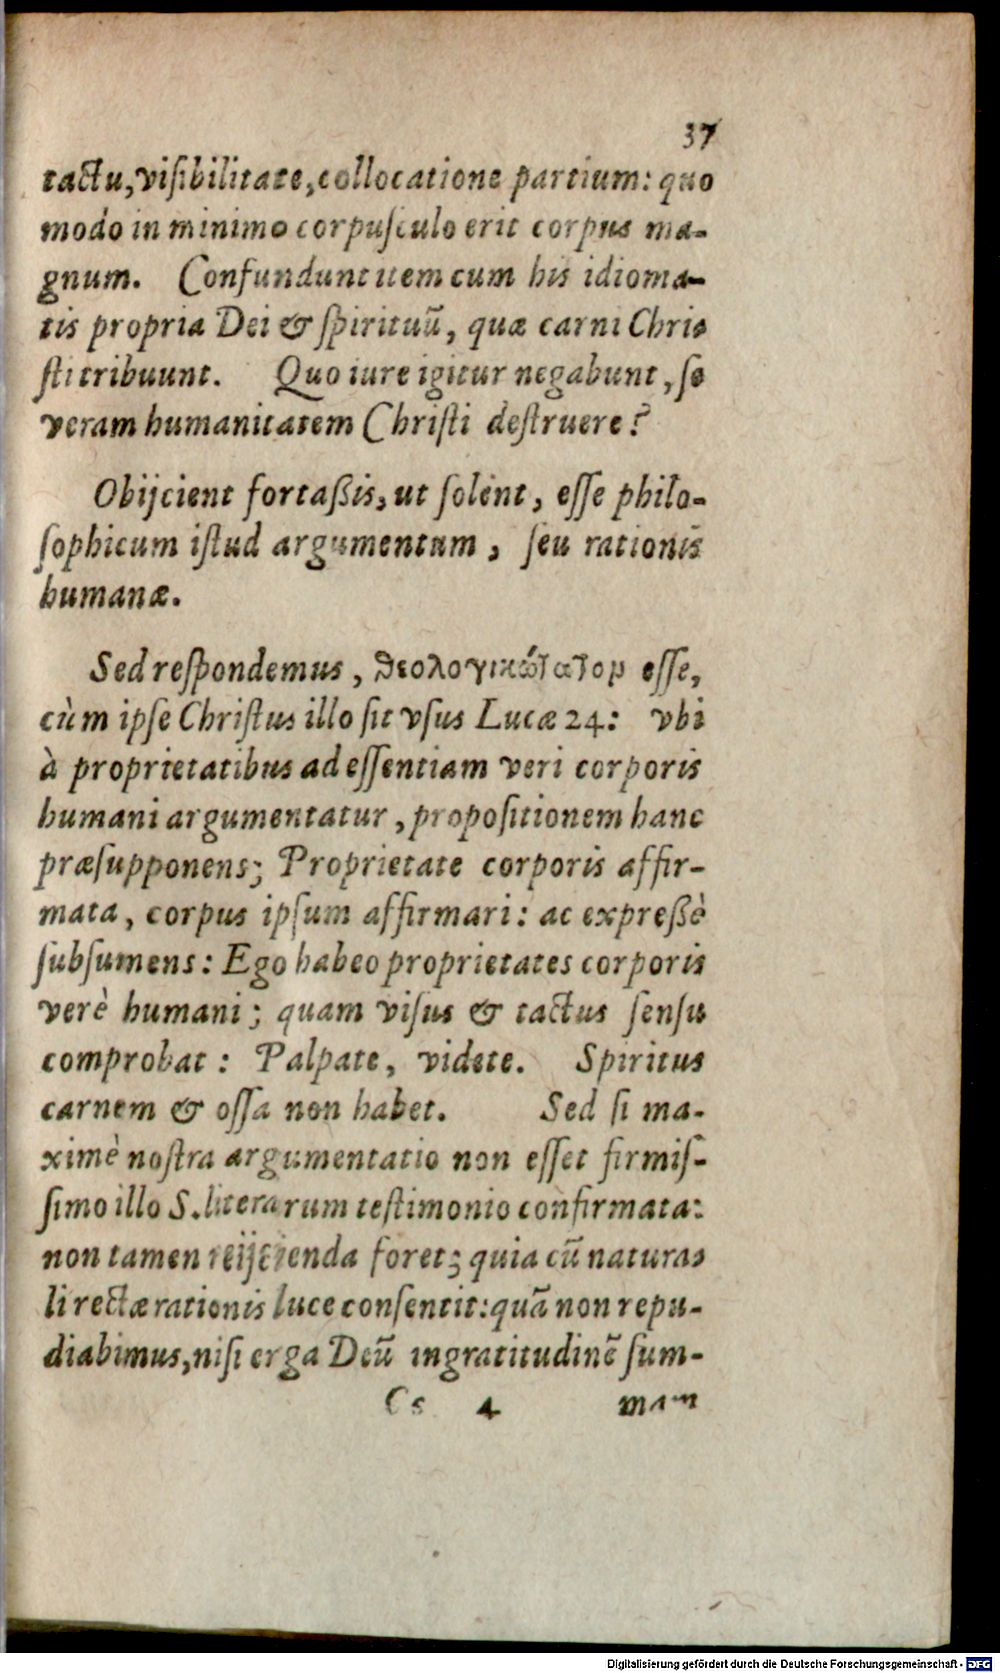 37
tactu, viſibilitate, collocatione partium: quo
modo in minimo corpuſculo erit corpus ma-
gnum. Confundunt item cum his idioma-
tis propria Dei & ſpirituũ, quæ carni Chri-
ſti tribuunt. Quo iure igitur negabunt, ſe
veram humanitatem Chriſti deſtruere?
Obijcient fortaßis, ut ſolent, eſſe philo-
ſophicum iſtud argumentum, ſeu rationis
humanæ.
Sed reſpondemus, θεολογικώτατον eſſe,
cùm ipſe Chriſtus illo ſit vſus Lucæ 24: vbi
à proprietatibus ad eſſentiam veri corporis
humani argumentatur, propoſitionem hanc
præſupponens; Proprietate corporis affir-
mata, corpus ipſum affirmari: ac expreßè
ſubſumens: Ego habeo proprietates corporis
verè humani; quam viſus & tactus ſenſu
comprobat: Palpate, videte. Spiritus
carnem & oſſa non habet. Sed ſi ma-
ximè noſtra argumentatio non eſſet firmiſ-
ſimo illo S. literarum teſtimonio confirmata:
non tamen reijcienda foret; quia cũ natura-
li rectæ rationis luce conſentit: quã non repu-
diabimus, niſi erga Deũ ingratitudinẽ ſum-
4 mam
Digitalisierung gefördert durch die Deutsche Forschungsgemeinschaft - DFG